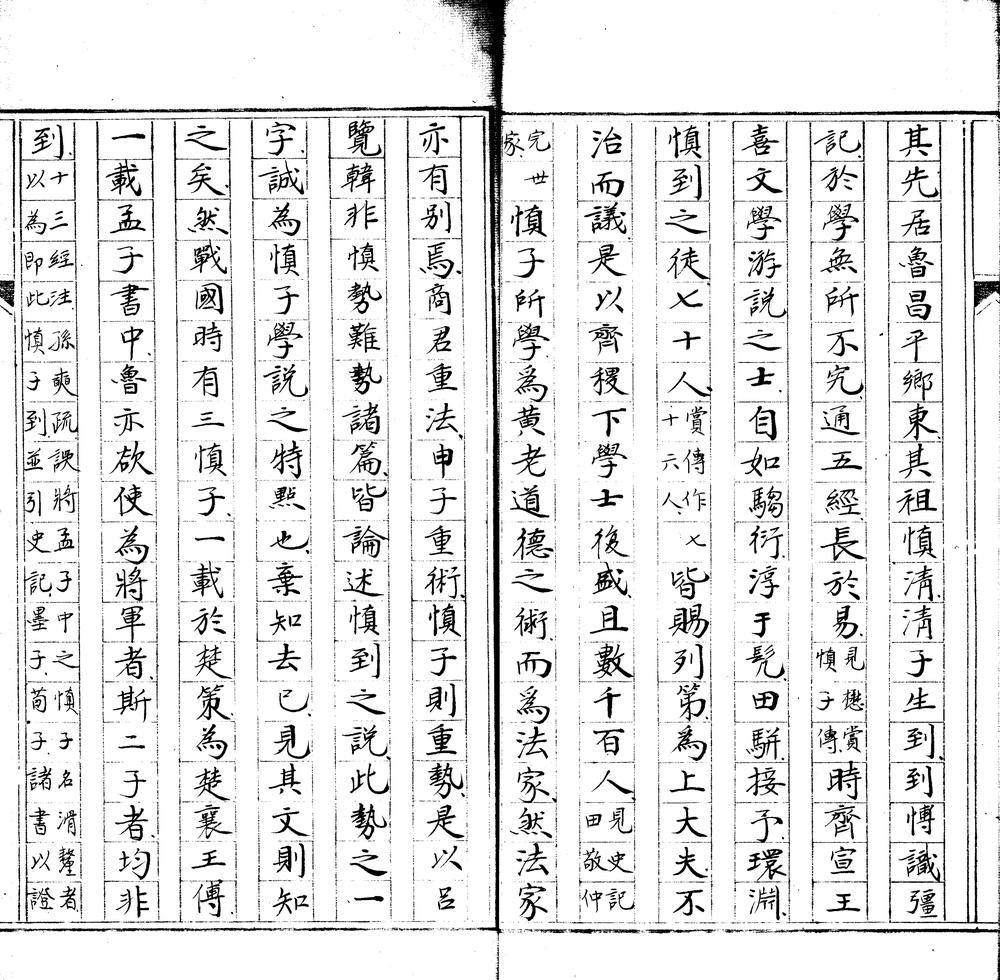 其先居魯昌平鄉東其祖慎淸淸子生到到愽識彊
記於學無所不究通五經長於易見懋賞慎子傳時齊宣王
喜文學游說之士自如騶衍淳于髡田駢接予環淵
慎到之徒七十人賞傳作七十六人皆賜列第為上大夫不
治而議是以齊稷下學士復盛且數千百人見史記田敬仲
完世家慎子所學爲黃老道德之術而爲法家然法家
亦有別焉商君重法申子重術慎子則重勢是以呂
覽韓非慎勢難勢諸篇皆論述慎到之說此勢之一
字誠為慎子學說之特點也棄知去已見其文則知
之矣然戰國時有三慎子一載於楚策為楚襄王傅
一載孟子書中魯亦欲使為將軍者斯二子者均非
到十三經注孫奭疏誤將孟子中之慎子名滑釐者以為即此慎子到並引史記墨子荀子諸書以證